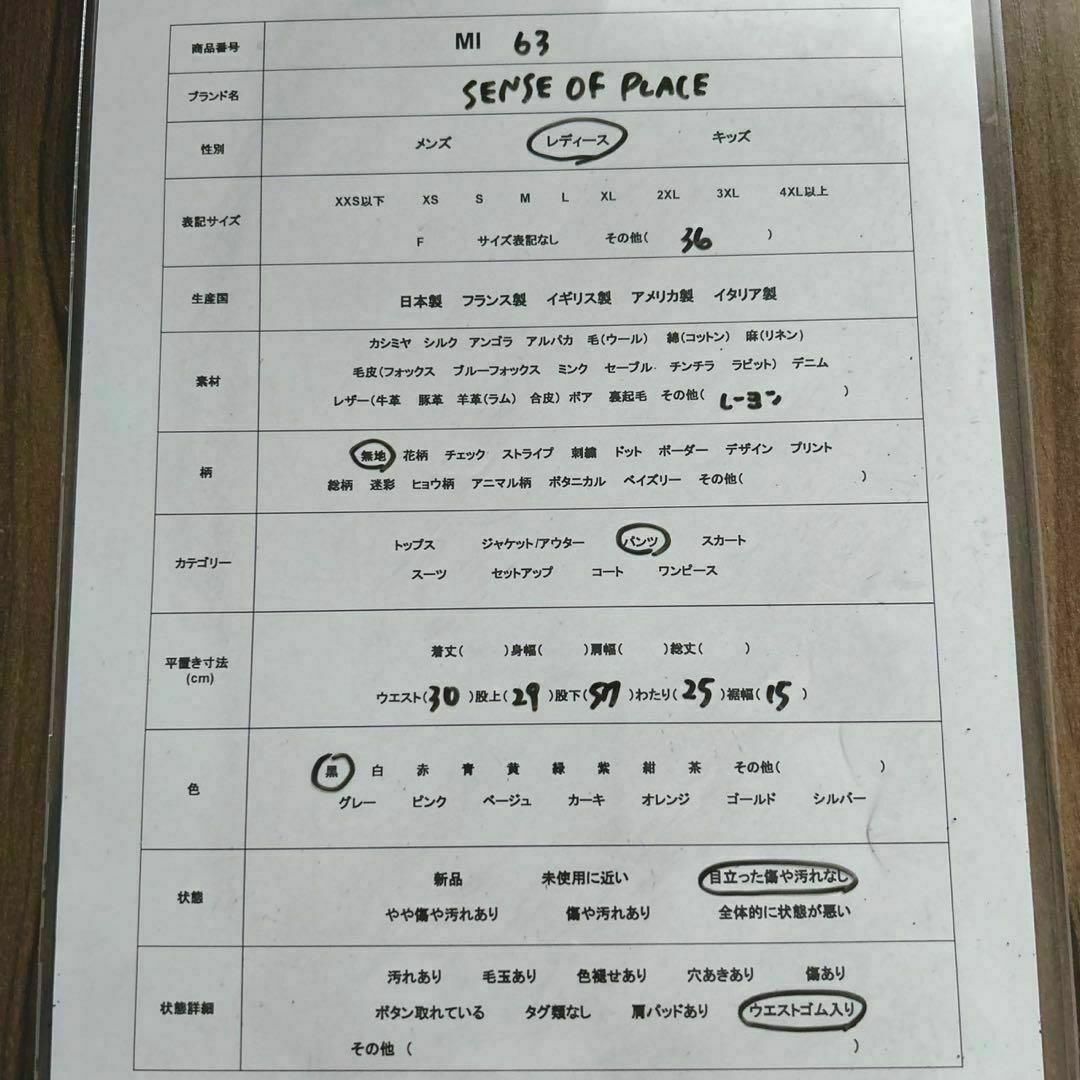 商品番号 MI 63
ブランド名 SENSE OF PLACE
性別 メンズ レディース キッズ
XXS以下 XS S M L XL 2XL 3XL 4XL以上
表記サイズ
F サイズ表記なし その他( 36 )
生産国 日本製 フランス製 イギリス製 アメリカ製 イタリア製
カシミヤ シルク アンゴラ アルパカ 毛(ウール) 綿(コットン) 麻(リネン)
毛皮(フォックス ブルーフォックス ミンク セーブル チンチラ ラビット) デニム
素材
レザー(牛革 豚革 羊革(ラム) 合皮) ボア 裏起毛 その他( レーヨン )
無地 花柄 チェック ストライプ 刺繍 ドット ボーダー デザイン プリント
柄
総柄 迷彩 ヒョウ柄 アニマル柄 ボタニカル ペイズリー その他( )
トップス ジャケット/アウター パンツ スカート
カテゴリー
スーツ セットアップ コート ワンピース
着丈( )身幅( )肩幅( )総丈( )
平置き寸法
(cm)
ウエスト(30)股上(29)股下(57)わたり(25)裾幅(15)
黒 白 赤 青 黄 緑 紫 紺 茶 その他( )
色
グレー ピンク ベージュ カーキ オレンジ ゴールド シルバー
新品 未使用に近い 目立った傷や汚れなし
状態
やや傷や汚れあり 傷や汚れあり 全体的に状態が悪い
汚れあり 毛玉あり 色褪せあり 穴あきあり 傷あり
状態詳細
ボタン取れている タグ類なし 肩パッドあり ウエストゴム入り
その他 ( )